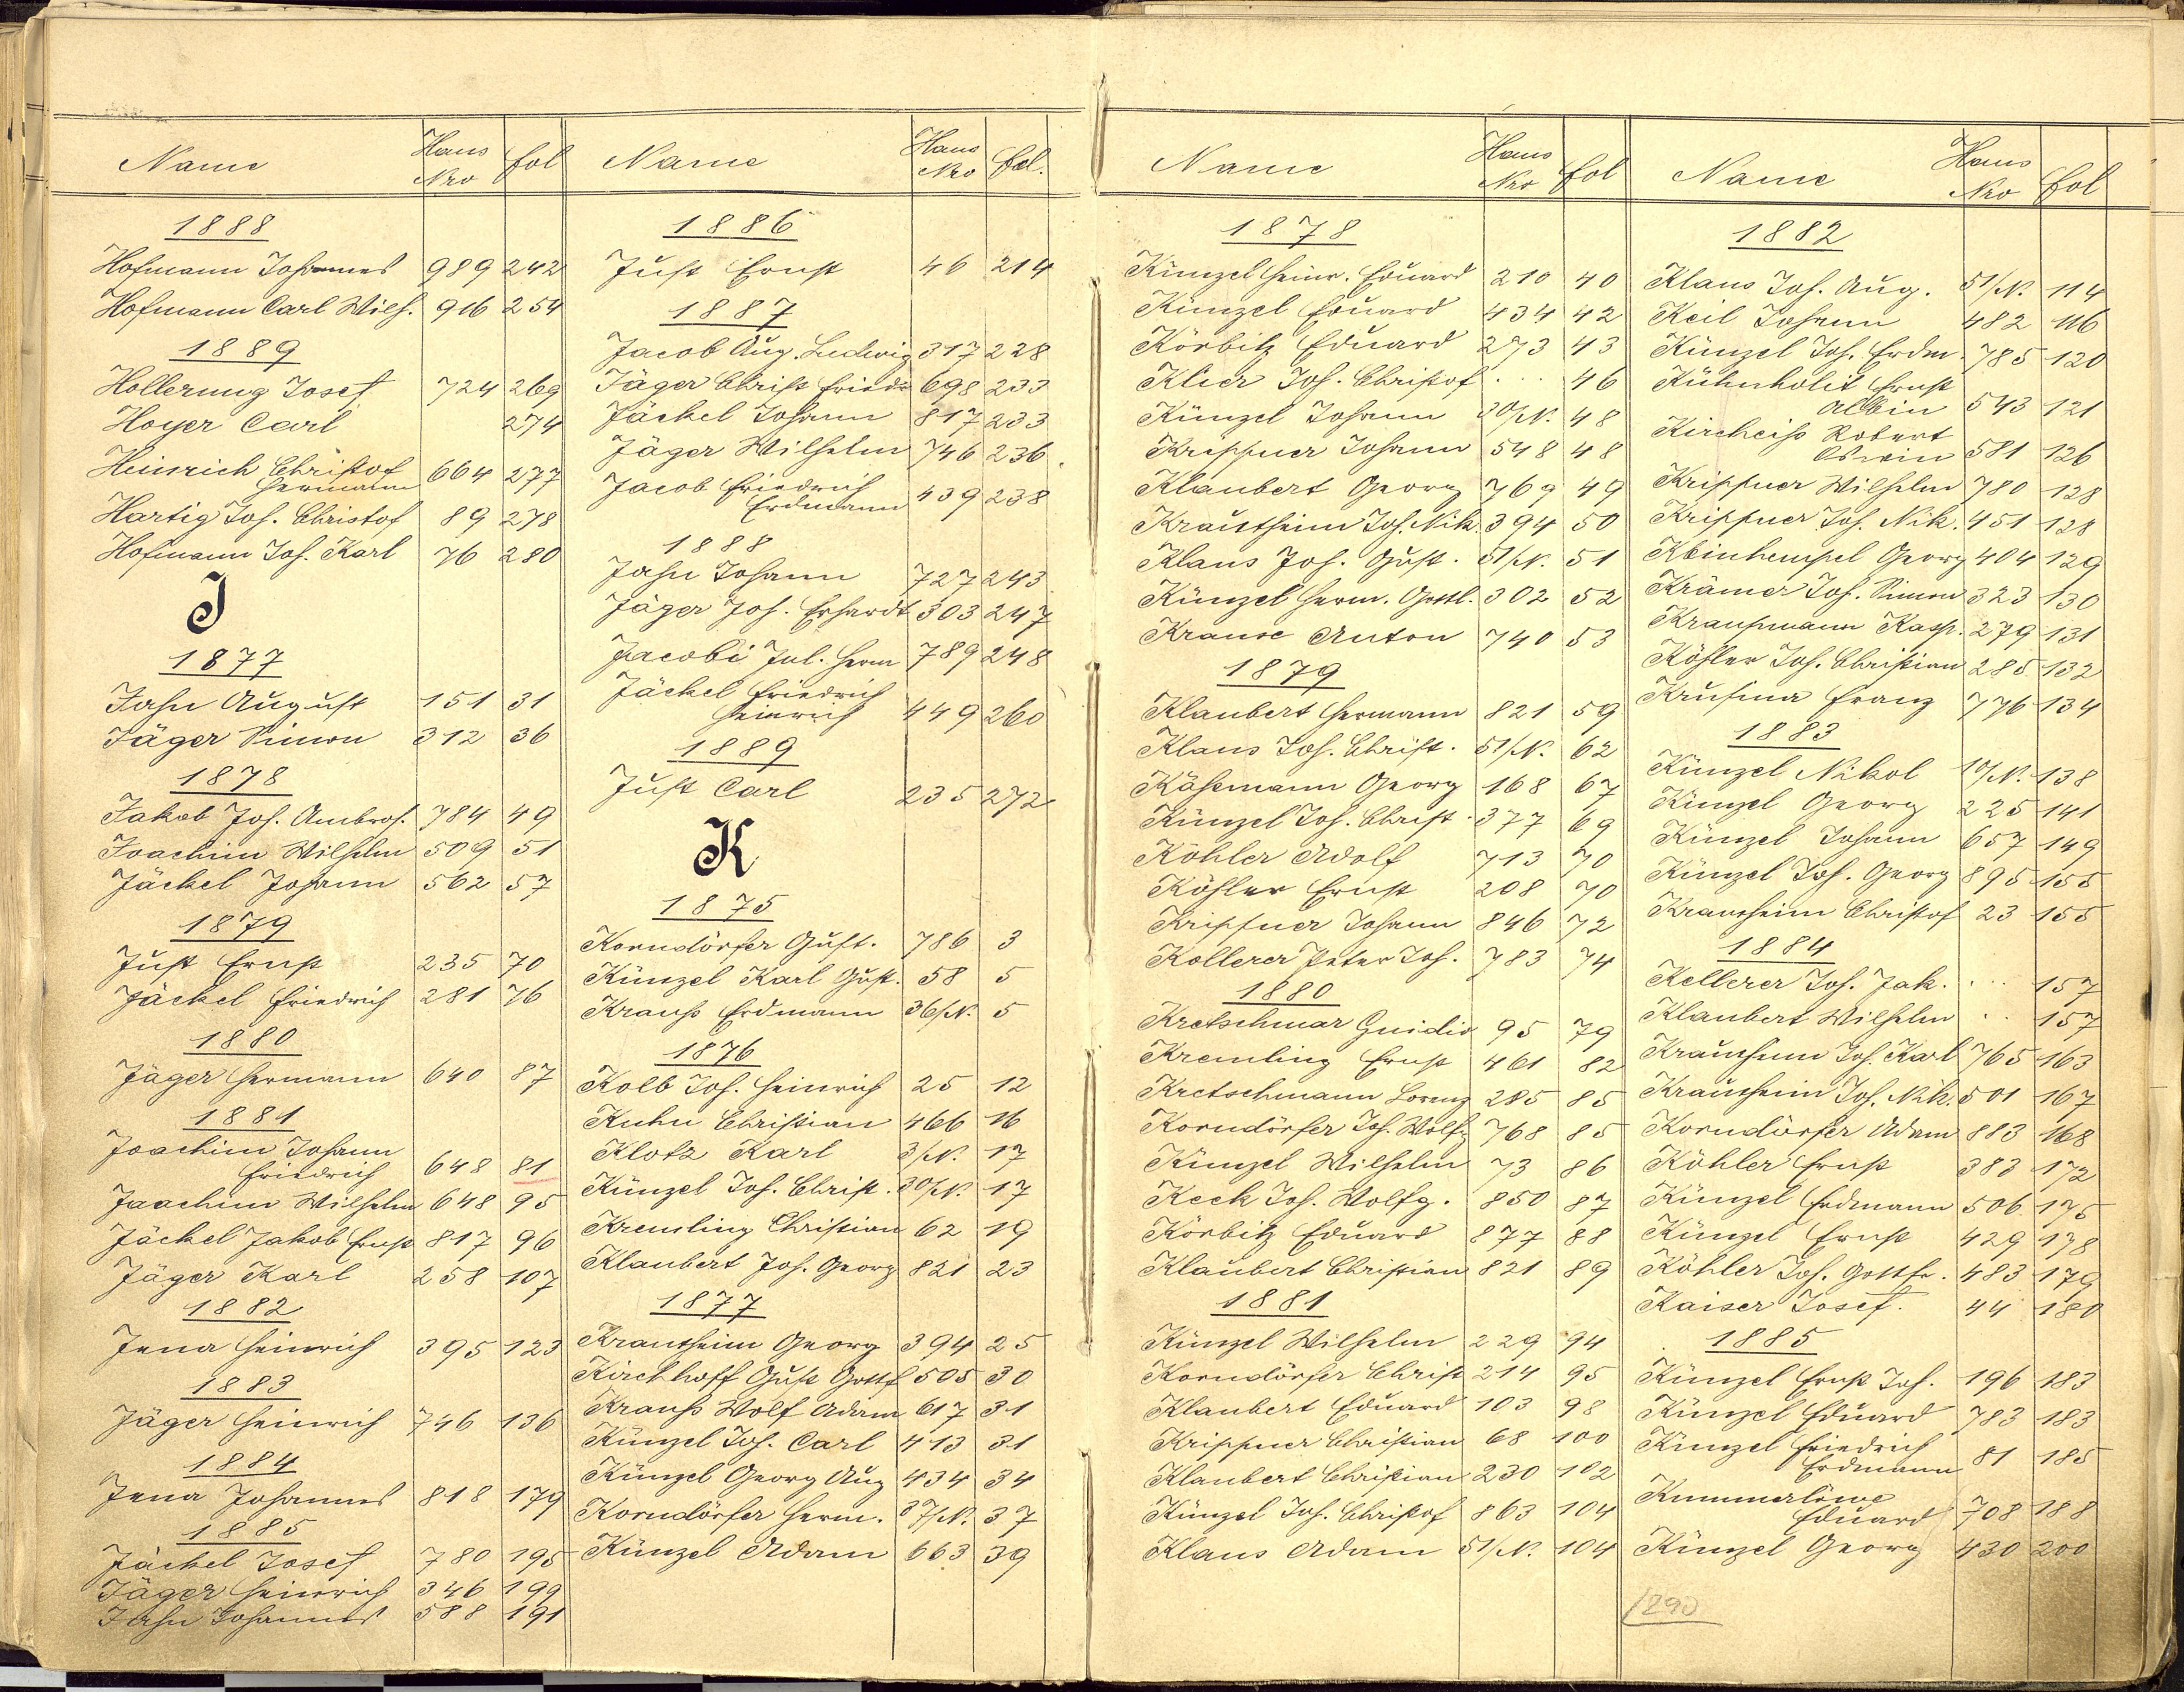 Name Haus Nro fol
1888
Hofmann Johannes 989 242
Hofmann Carl Wilh. 916 254
1889
Hollerung Josef 724 269
Hoyer Carl 274
Heinrich Christof
Hermann 664 277
Hartig Joh. Christof 89 278
Hofmann Joh. Karl 76 280
J
1877
Jahn August 151 31
Jäger Simon 312 36
1878
Jakob Joh. Ambros. 784 49
Joachim Wilhelm 509 51
Jäckel Johann 562 57
1879
Just Ernst 235 70
Jäckel Friedrich 281 76
1880
Jäger Hermann 640 87
1881
Joachim Johann
Friedrich 648 81
Joachim Wilhelm 648 95
Jäckel Jakob Ernst 817 96
Jäger Karl 258 107
1882
Jena Heinrich 395 123
1883
Jäger Heinrich 746 136
1884
Jena Johannes 818 179
1885
Jäckel Josef 780 195
Jäger Heinrich 346 199
Jahn Johannes 588 191
Name Haus Nro fol.
1886
Just Ernst 46 214
1887
Jacob Aug. Ludwig 317 228
Jäger Christ Friedr 698 233
Jäckel Johann 817 233
Jäger Wilhelm 746 236
Jacob Friedrich
Erdmann 439 238
1888
Jahn Johann 727 243
Jäger Joh. Erhardt 303 247
Jacobi Jul. Herm 789 248
Jäckel Friedrich
Heinrich 449 260
1889
Just Carl 235 272
K
1875
Korndörfer Gust. 786 3
Künzel Karl Gust. 58 5
Krauß Erdmann 36/N. 5
1876
Kolb Joh. Heinrich 25 12
Kuhn Christian 466 16
Klotz Karl 3/N. 17
Künzel Joh. Christ. 30/N. 17
Kremling Christian 62 19
Klaubert Joh. Georg 821 23
1877
Krautheim Georg 394 25
Kirchhoff Gust Gottf 505 30
Krauß Wolf Adam 617 31
Künzel Joh. Carl 413 31
Künzel Georg Aug 434 34
Korndörfer Herm. 37/N. 37
Künzel Adam 663 39
Name Haus Nro fol
1878
Künzel Heinr. Eduard 210 40
Künzel Eduard 434 42
Körbitz Eduard 273 43
Klier Joh. Christof . .. 46
Künzel Johann 30/N. 48
Krippner Johann 548 48
Klaubert Georg 769 49
Krautheim Joh. Nik. 394 50
Klaus Joh. Gust. 51/N. 51
Künzel Herm. Gottl. 302 52
Krause Anton 740 53
1879
Klaubert Hermann 821 59
Klaus Joh. Christ. 51/N. 62
Käsemann Georg 168 67
Künzel Joh. Christ. 377 69
Köhler Adolf 713 70
Köhler Ernst 208 70
Krippner Johann 846 72
Kollerer Peter Joh. 783 74
1880
Kretschmar Guidio 95 79
Kremling Ernst 461 82
Kretschmann Lorenz 285 85
Korndörfer Joh. Wolfg 768 85
Künzel Wilhelm 73 86
Keck Joh. Wolfg. 850 87
Körbitz Eduard 877 88
Klaubert Christian 821 89
1881
Künzel Wilhelm 229 94
Korndörfer Christ 214 95
Klaubert Eduard 103 98
Krippner Christian 68 100
Klaubert Christian 230 102
Künzel Joh. Christof 863 104
Klaus Adam 51/N. 104
Name Haus Nro fol
1882
Klaus Joh. Aug. 51/N. 114
Keil Johann 482 116
Künzel Joh. Erdm. 785 120
Kühnholit Ernst
Albin 543 121
Kircheiß Robert
Oswin 581 126
Krippner Wilhelm 780 128
Krippner Joh. Nik. 451 128
Kleinhempel Georg 404 129
Krämer Joh. Simon 323 130
Kraußmann Kasp. 279 131
Köhler Joh. Christian 285 132
Krusina Franz 776 134
1883
Künzel Nikol 10/N. 138
Künzel Georg 225 141
Künzel Johann 657 149
Künzel Joh. Georg 895 155
Krautheim Christof 23 155
1884
Kellerer Joh. Jak. . .. 157
Klaubert Wilhelm . .. 157
Krautheim Joh. Karl 765 163
Krautheim Joh. Nik. 501 167
Korndörfer Adam 883 168
Köhler Ernst 383 172
Künzel Erdmann 506 175
Künzel Ernst 429 178
Köhler Joh. Gottfr. 483 179
Kaiser Josef. 44 180
1885
Künzel Ernst Joh. 196 183
Künzel Eduard 783 183
Künzel Friedrich
Erdmann 81 185
Kummerlöwe
Eduard 708 188
Künzel Georg 430 200
1290